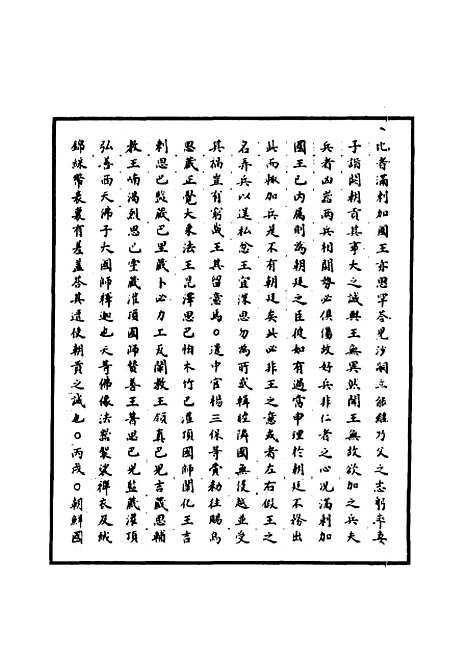 比者滿剌加國王亦思罕答兒沙嗣立能繼乃父之志躬率妻
子詣闕朝貢其事大之誠與王無異然聞王無故欲加之兵夫
兵者凶器兩兵相鬪勢必俱傷故好兵非仁者之心况滿剌加
國王已内屬則為朝廷之臣彼如有過當申理於朝廷不務出
此而輙加兵是不有朝廷矣此必非王之意或者左右假王之
名弄兵以逞私忿王宜深思勿為所惑輯睦隣國無侵越並受
其福豈有窮哉王其留意焉○遣中官楊三保等賫勅往賜烏
思藏正覺大乘法王昆澤思巴怕木竹巴灌頂國師闡化王吉
剌思巴監藏巴里藏卜必力工瓦闡教王領真巴兒吉監藏思輔
教王喃渴烈思巴靈藏灌頂國師贊善王著思巴兒監藏灌頂
弘善西天佛子大國師釋迦也失等佛像法器袈裟禪衣及絨
錦綵幣表裏有差蓋荅其遣使朝貢之誠也○丙戌○朝鮮國